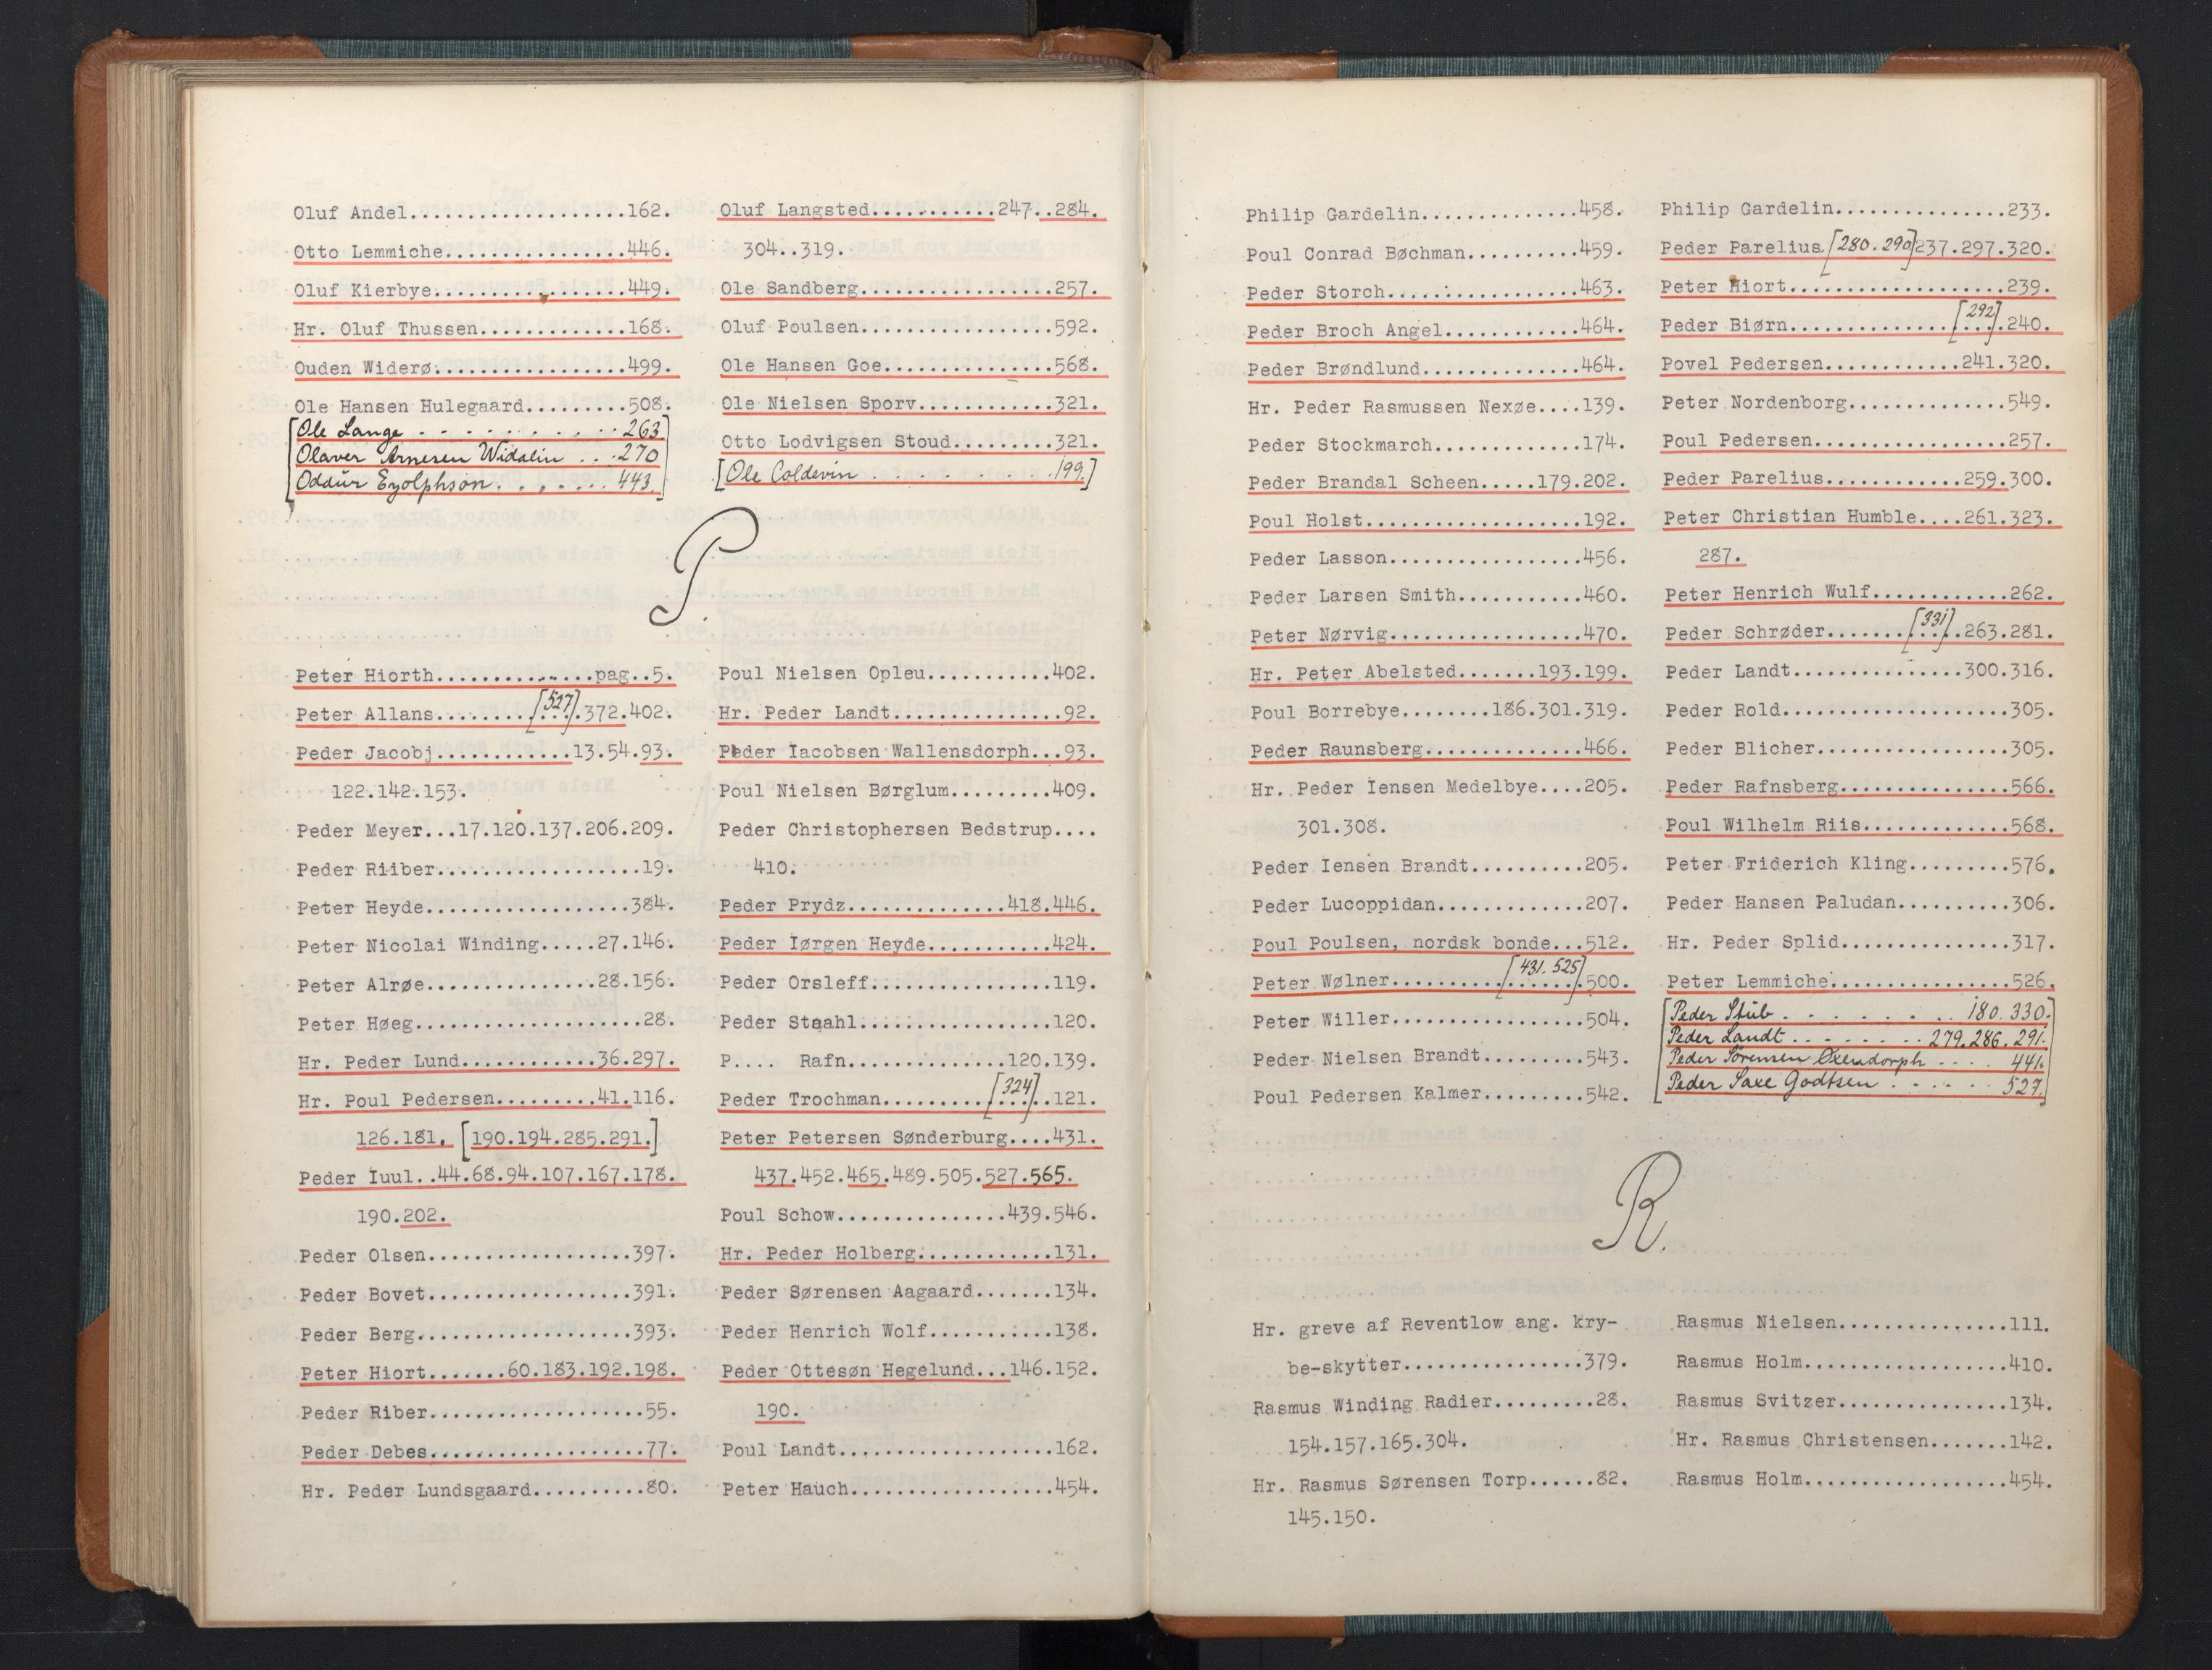 Oluf Andel...................162.
Otto Lemmiche................446.
Oluf Kierbye.................449.
Hr. Oluf Thussen.............168.
Ouden Widerø.................499.
Ole Hansen Hulegaard.........508.
[Ole Lange . . . . . . . . . . 263]
[Olaver Arnesen Widalin . . . 270]
[Oddur Eyolphson . . . . . . . 443.]
Oluf Langsted...........247..284.
304..319.
Ole Sandberg.................257.
Oluf Poulsen.................592.
Ole Hansen Goe...............568.
Ole Nielsen Sporv............321.
Otto Lodvigsen Stoud.........321.
[Ole Coldevin . . . . . . . . . .199.]
P.
Peter Hiorth..............pag..5.
Peter Allans.........[527].372.402.
Peder Jacobj............13.54.93.
122.142.153.
Peder Meyer...17.120.137.206.209.
Peder Riiber..................19.
Peter Heyde..................384.
Peter Nicolai Winding.....27.146.
Peter Alrøe...............28.156.
Peter Høeg....................28.
Hr. Peder Lund............36.297.
Hr. Poul Pedersen.........41.116.
126.181. [190.194.285.291.]
Peder Iuul..44.68.94.107.167.178.
190.202.
Peder Olsen..................397.
Peder Bovet..................391.
Peder Berg...................393.
Peter Hiort.......60.183.192.198.
Peder Riber...................55.
Peder Debes...................77.
Hr. Peder Lundsgaard..........80.
Poul Nielsen Opleu...........402.
Hr. Peder Landt...............92.
Peder Iacobsen Wallensdorph...93.
Poul Nielsen Børglum.........409.
Peder Christophersen Bedstrup....
410.
Peder Prydz..............418.446.
Peder Iørgen Heyde...........424.
Peder Orsleff................119.
Peder Staahl.................120.
P.... Rafn..............120.139.
Peder Trochman.........[324]..121.
Peter Petersen Sønderburg....431.
437.452.465.489.505.527.565.
Poul Schow...............439.546.
Hr. Peder Holberg............131.
Peder Sørensen Aagaard.......134.
Peder Henrich Wolf...........138.
Peder Ottesøn Hegelund...146.152.
190.
Poul Landt...................162.
Peter Hauch..................454.
Philip Gardelin..............458.
Poul Conrad Bøchman..........459.
Peder Storch.................463.
Peder Broch Angel............464.
Peder Brøndlund..............464.
Hr. Peder Rasmussen Nexøe....139.
Peder Stockmarch.............174.
Peder Brandal Scheen.....179.202.
Poul Holst...................192.
Peder Lasson.................456.
Peder Larsen Smith...........460.
Peter Nørvig.................470.
Hr. Peter Abelsted.......193.199.
Poul Borrebye........186.301.319.
Peder Raunsberg..............466.
Hr. Peder Iensen Medelbye....205.
301.308.
Peder Iensen Brandt..........205.
Peder Lucoppidan.............207.
Poul Poulsen, nordsk bonde...512.
Peter Wølner..........[431.525].500.
Peter Willer.................504.
Peder Nielsen Brandt.........543.
Poul Pedersen Kalmer.........542.
Philip Gardelin...............233.
Peder Parelius[280.290]237.297.320.
Peter Hiort...................239.
Peder Biørn..............[292].240.
Povel Pedersen............241.320.
Peter Nordenborg..............549.
Poul Pedersen.................257.
Peder Parelius............259.300.
Peter Christian Humble....261.323.
287.
Peter Henrich Wulf............262.
Peder Schrøder.......[331].263.281.
Peder Landt...............300.316.
Peder Rold....................305.
Peder Blicher.................305.
Peder Rafnsberg...............566.
Poul Wilhelm Riis.............568.
Peter Friderich Kling.........576.
Peder Hansen Paludan..........306.
Hr. Peder Splid...............317.
Peter Lemmiche................526.
[Peder Stub . . . . . . . . . 180.330.]
[Peder Landt . . . . . . . 279.286.291.]
[Peder Sörensen Oxendorph . . . . 441.]
[Peder Saxe Godtsen . . . . . . 527.]
R.
Hr. greve af Reventlow ang. kry-
be-skytter................379.
Rasmus Winding Radier.........28.
154.157.165.304.
Hr. Rasmus Sørensen Torp......82.
145.150.
Rasmus Nielsen...............111.
Rasmus Holm..................410.
Rasmus Svitzer...............134.
Hr. Rasmus Christensen.......142.
Rasmus Holm..................454.